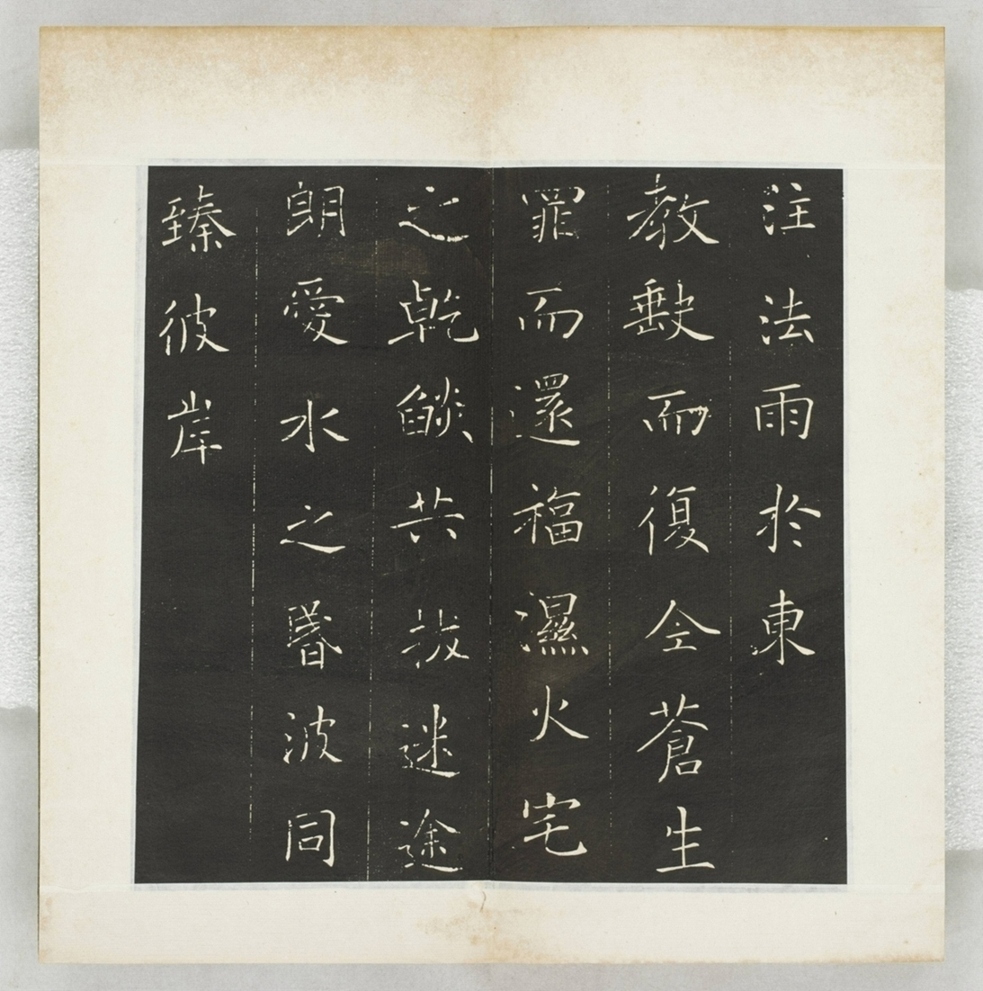 注法雨於東
教缺而復全蒼生
罪而還福濕火宅
之乾燄共拔迷途
朗愛水之昏波同
臻彼岸